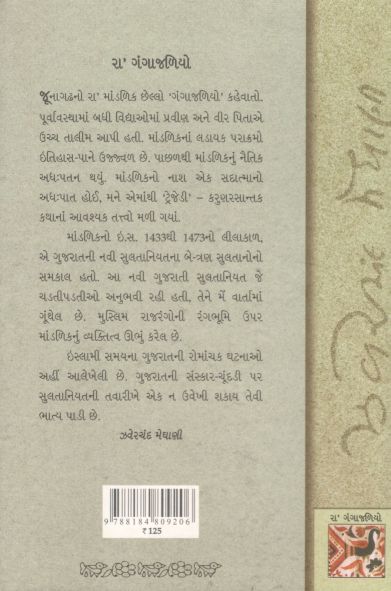 રા' ગંગાજળિયો
જૂનાગઢનો રા' માંડળિક છેલ્લો 'ગંગાજળિયો' કહેવાતો.
પૂર્વાવસ્થામાં બધી વિદ્યાઓમાં પ્રવીણ અને વીર પિતાએ
ઉચ્ચ તાલીમ આપી હતી. માંડળિકનાં લડાયક પરાક્રમો
ઇતિહાસ-પાને ઉજ્જ્વળ છે. પાછળથી માંડળિકનું નૈતિક
અધઃપતન થયું. માંડળિકનો નાશ એક સદાત્માનો
અધઃપાત હોઈ, મને એમાંથી 'ટ્રેજેડી' – કરુણરસાન્તક
કથાનાં આવશ્યક તત્ત્વો મળી ગયાં.
માંડળિકનો ઇ.સ. 1433થી 1473નો લીલાકાળ,
એ ગુજરાતની નવી સુલતાનિયતના બે-ત્રણ સુલતાનોનો
સમકાલ હતો. આ નવી ગુજરાતી સુલતાનિયત જે
ચડતીપડતીઓ અનુભવી રહી હતી, તેને મેં વાર્તામાં
ગૂંથેલ છે. મુસ્લિમ રાજરંગોની રંગભૂમિ ઉપર
માંડળિકનું વ્યક્તિત્વ ઊભું કરેલ છે.
ઇસ્લામી સમયના ગુજરાતની રોમાંચક ઘટનાઓ
અહીં આલેખેલી છે. ગુજરાતની સંસ્કાર-ચૂંદડી પર
સુલતાનિયતની તવારીખે એક ન ઉવેખી શકાય તેવી
ભાત્ય પાડી છે.
ઝવેરચંદ મેઘાણી
9 788184 809206
₹ 125
ઝવેરચંદ મેઘાણી
રા' ગંગાજળિયો